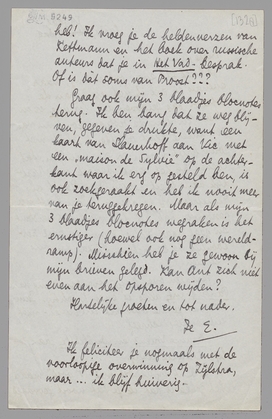 B. 5249
[1934]
heb! Ik vroeg je de heldenverzen van
Kettmann en het boek over russische
auteurs dat je in Het Vad. besprak.
Of is dàt soms van Proost???
Graag ook mijn 3 blaadjes blocnotes
terug. Ik ben bang dat ze weg blij-
ven, gegeven je drukte, want een
kaart van Slauerhoff aan Vic met
een „maison de Sylvie" op de achter-
kant waar ik erg op gesteld ben, is
ook zoekgeraakt en heb ik nooit meer
van je teruggekregen. Maar als mijn
3 blaadjes blocnotes wegraken is het
ernstiger (hoewel ook nog geen wereld-
ramp). Misschien heb je ze gewoon bij
mijn brieven gelegd. Kan Ant zich niet
even aan het opsporen wijden?
Hartelijke groeten en tot nader.
Je E.
Ik feliciteer je nogmaals met de
voorloopige overwinning op Zijlstra,
maar ... ik blijf huiverig.